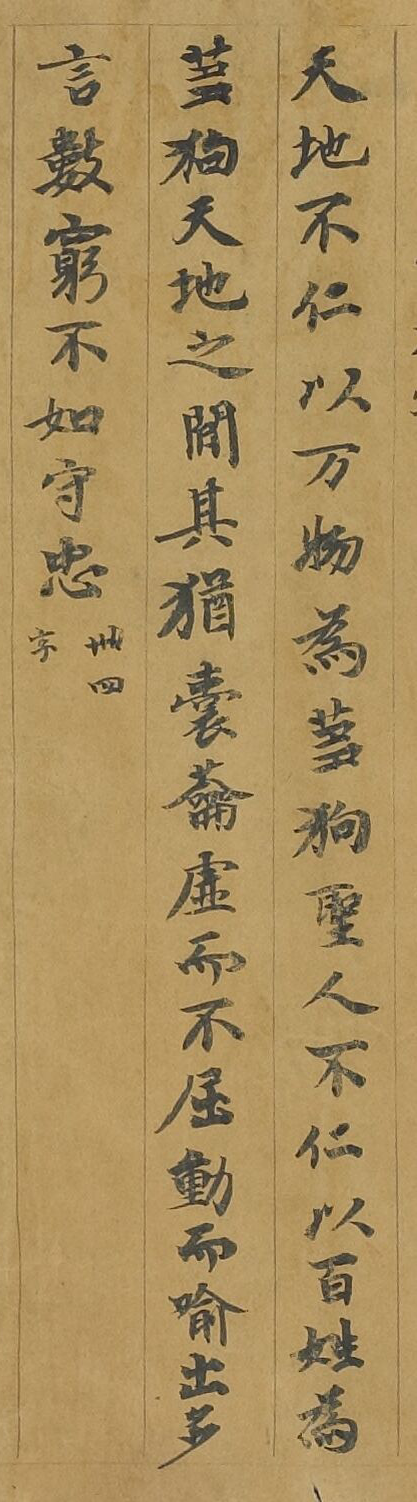 天地不仁以万物為蒭狗聖人不仁以百姓為
蒭狗天地之間其猶橐蘥虛而不屈動而喻出多
言數窮不如守忠
卌四
字